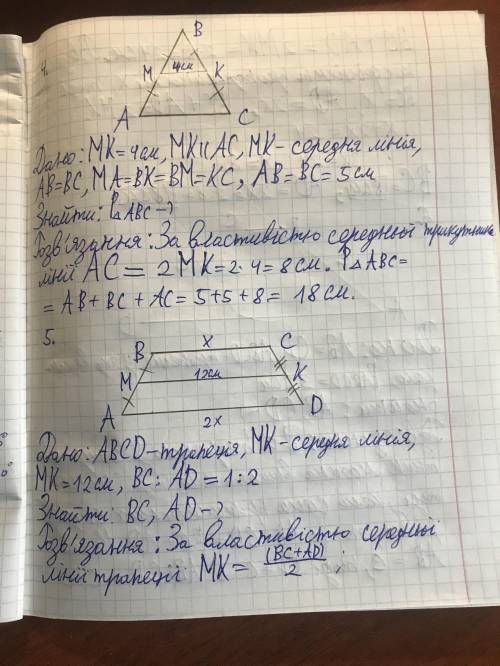 4.
B
M 4см K
A C
Дано: MK=4см, MK||AC, MK- середня лінія,
AB=BC, MA=BK=BM=KC, AB=BC=5см
Знайти: P△ABC-?
Розв'язання: За властивістю середньої трикутника
лінії AC = 2MK=2·4=8см. P△ABC=
= AB+BC+AC=5+5+8= 18см.
5.
B x C
M 12см K
A 2x D
Дано: ABCD-трапеція, MK-середня лінія,
MK=12см, BC:AD=1:2
Знайти: BC, AD-?
Розв'язання: За властивістю середньої
лінії трапеції MK= (BC+AD)/2 ;